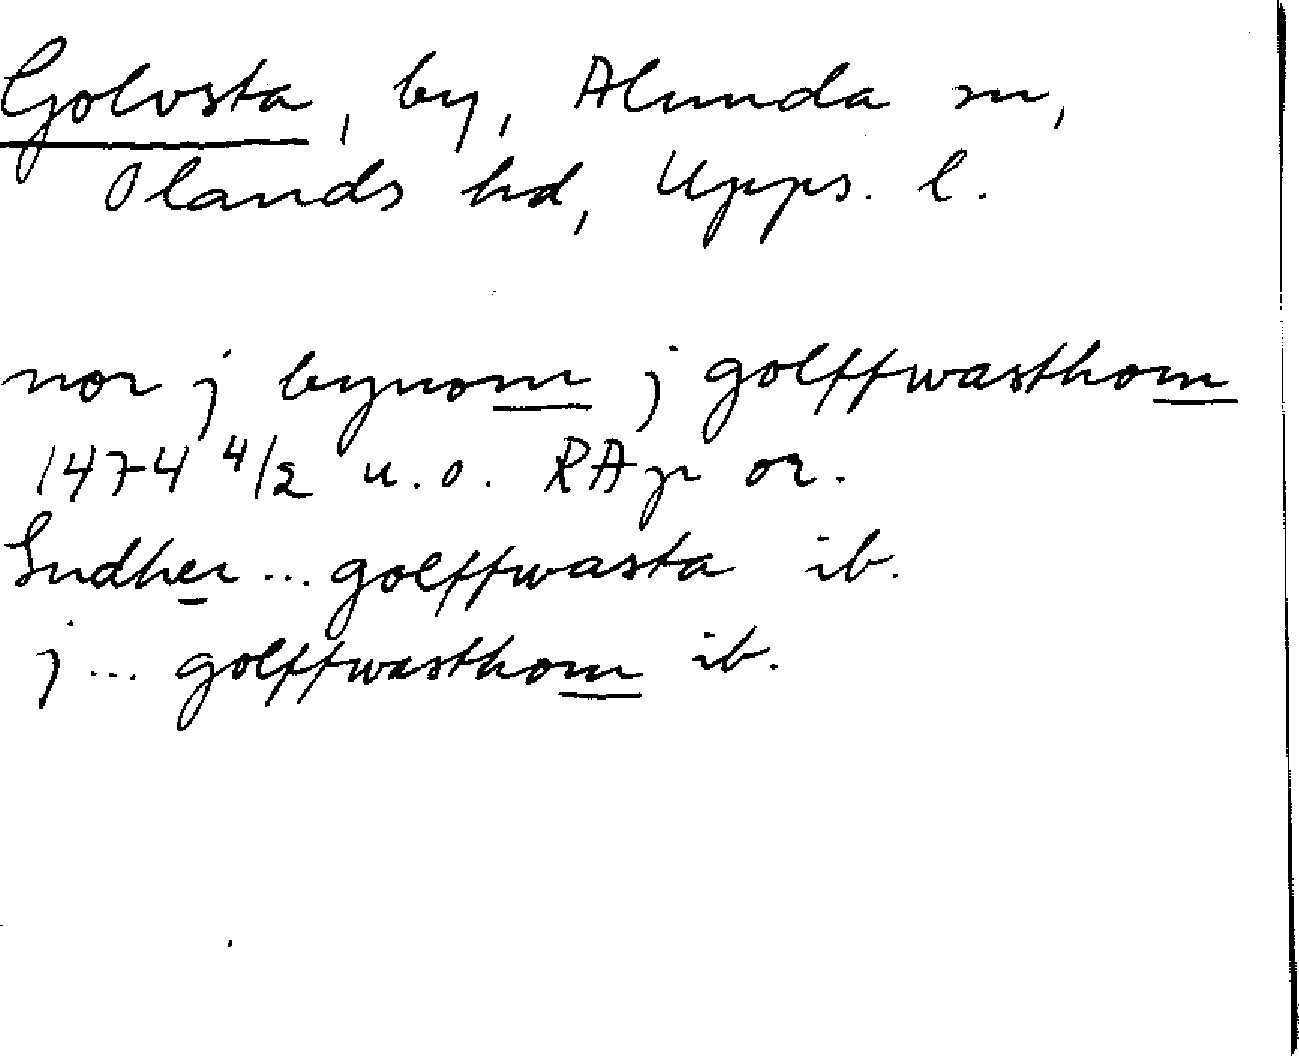 Golvsta, by, Alunda sn,
Olands hd, Upps. l.
nor j bynom j golffwasthom
1474 4/2 u.o. RAp or.
Sudher... golffwasta ib.
j... golffwasthom ib.